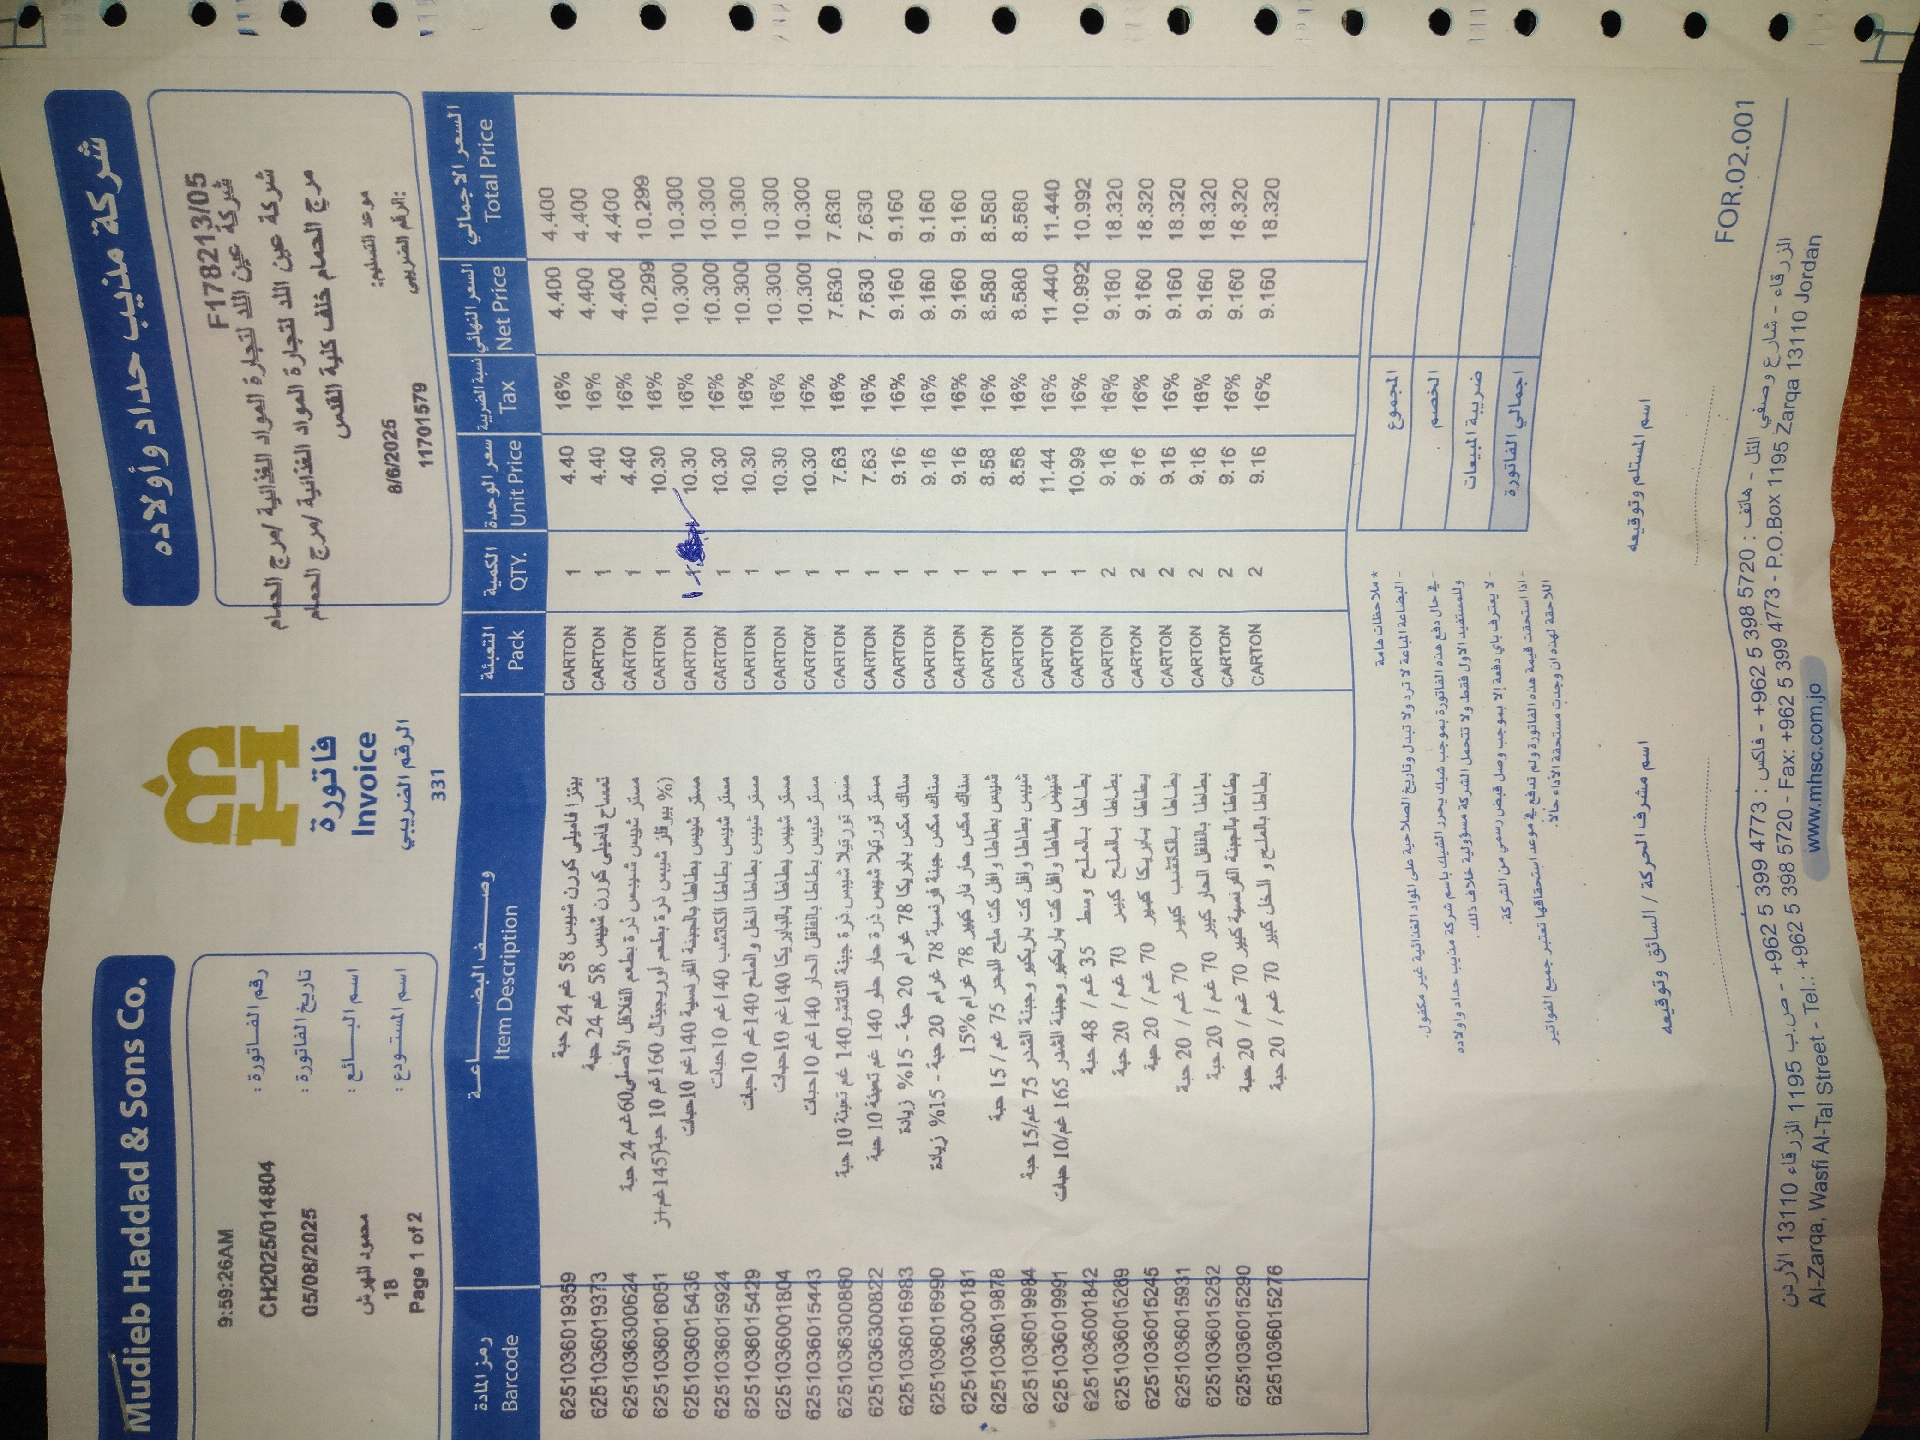 Mudieb Haddad & Sons Co.
شركة مذيب حداد وأولاده
فاتورة
Invoice
الرقم الضريبي
331
9:59:26AM
رقم الفاتورة : CH2025/014804
تاريخ الفاتورة : 05/08/2025
اسم البائع : محمود
اسم المستودع : 18
Page 1 of 2
F178213/05
شركة عين اللد لتجارة المواد الغذائية /مرج الحمام
شركة عين اللد لتجارة المواد الغذائية /مرج الحمام
مرج الحمام خلف كلية القدس
موعد التسليم: 8/6/2025
الرقم الضريبي: 11701579
رمز المادة وصف البضاعة التعبئة الكمية سعر الوحدة نسبة الضريبة السعر النهائي السعر الاجمالي
Barcode Item Description Pack QTY. Unit Price Tax Net Price Total Price
6251036019359 بيتزا فاميلي كورن شيبس 58 غم 24 حبة CARTON 1 4.40 16% 4.400 4.400
6251036019373 تمساح فاميلي كورن شيبس 58 غم 24 حبة CARTON 1 4.40 16% 4.400 4.400
6251036300624 مستر شيبس شيبس ذرة بطعم الفلافل الأصلي60غم 24 حبة CARTON 1 4.40 16% 4.400 4.400
6251036016051 بيوقلز شيبس ذرة بطعم اوريجينال 160غم 10 حبة(145غم+ CARTON 1 10.30 16% 10.299 10.299
6251036015436 مستر شيبس بطاطا بالجبنة الفرنسية 140غم 10حبات CARTON 1 10.30 16% 10.300 10.300
6251036015924 مستر شيبس بطاطا الكاتشب 140غم 10حبات CARTON 1 10.30 16% 10.300 10.300
6251036015429 مستر شيبس بطاطا الخل والملح 140غم 10حبات CARTON 1 10.30 16% 10.300 10.300
6251036001804 مستر شيبس بطاطا بالبابريكا 140غم 10حبات CARTON 1 10.30 16% 10.300 10.300
6251036015443 مستر شيبس بطاطا بالفلفل الحار 140غم 10حبات CARTON 1 10.30 16% 10.300 10.300
6251036300860 مستر تورتيلا شيبس ذرة جبنة الناتشو 140 غم تعبئة 10 حبة CARTON 1 7.63 16% 7.630 7.630
6251036300822 مستر تورتيلا شيبس ذرة حار حلو 140 غم تعبئة 10 حبة CARTON 1 7.63 16% 7.630 7.630
6251036016983 سناك مكس بابريكا 78 غرام 20 حبة - 15% زيادة CARTON 1 9.16 16% 9.160 9.160
6251036016990 سناك مكس جبنة فرنسية 78 غرام 20 حبة - 15% زيادة CARTON 1 9.16 16% 9.160 9.160
6251036300181 سناك مكس حار نار كبير 78 غرام 15% CARTON 1 9.16 16% 9.160 9.160
6251036019878 شيبس بطاطا وافل كت ملح البحر 75 غم / 15 حبة CARTON 1 8.58 16% 8.580 8.580
6251036019984 شيبس بطاطا وافل كت باربكيو وجبنة الشدر 75 غم/15 حبة CARTON 1 8.58 16% 8.580 8.580
6251036019991 شيبس بطاطا وافل كت باربكيو وجبنة الشدر 165 غم/10 حبات CARTON 1 11.44 16% 11.440 11.440
6251036001842 بطاطا بالملح وسط 35 غم / 48 حبة CARTON 1 10.99 16% 10.992 10.992
6251036015269 بطاطا بالملح كبير 70 غم / 20 حبة CARTON 2 9.16 16% 9.160 18.320
6251036015245 بطاطا بابريكا كبير 70 غم / 20 حبة CARTON 2 9.16 16% 9.160 18.320
6251036015931 بطاطا بالكاتشب كبير 70 غم / 20 حبة CARTON 2 9.16 16% 9.160 18.320
6251036015252 بطاطا بالفلفل الحار كبير 70 غم / 20 حبة CARTON 2 9.16 16% 9.160 18.320
6251036015290 بطاطا بالجبنة الفرنسية كبير 70 غم / 20 حبة CARTON 2 9.16 16% 9.160 18.320
6251036015276 بطاطا بالملح و الخل كبير 70 غم / 20 حبة CARTON 2 9.16 16% 9.160 18.320
المجموع
الخصم
ضريبة المبيعات
اجمالي الفاتورة
* ملاحظات هامة
- البضاعة المباعة لا ترد ولا تبدل وتاريخ الصلاحية على المواد الغذائية غير مكفول.
- في حال دفع هذه الفاتورة بموجب شيك يحرر الشيك باسم شركة مذيب حداد واولاده
وللمستفيد الاول فقط ولا تتحمل الشركة مسؤولية خلاف ذلك.
- لا يعترف باي دفعة إلا بموجب وصل قبض رسمي من الشركة.
- اذا استحقت قيمة هذه الفاتورة ولم تدفع في موعد استحقاقها تعتبر جميع الفواتير
اللاحقة لهذه ان وجدت مستحقة الأداء حالاً.
اسم مشرف الحركة / السائق وتوقيعه
اسم المستلم وتوقيعه
FOR.02.001
الزرقاء - شارع وصفي التل - هاتف : 5720 398 5 962+ - فاكس : 4773 399 5 962+ - ص.ب 1195 الزرقاء 13110 الأردن
Al-Zarqa, Wasfi Al-Tal Street - Tel.: +962 5 398 5720 - Fax: +962 5 399 4773 - P.O.Box 1195 Zarqa 13110 Jordan
www.mhsc.com.jo